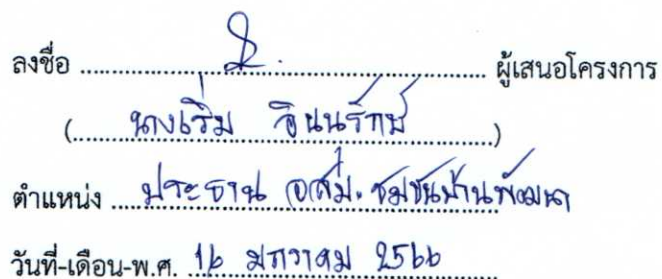 ลงชื่อ ........................................................ ผู้เสนอโครงการ
(นางเริ่ม อินนุรักษ์)
ตำแหน่ง ประธาน อสม. ชุมชนบ้านพัฒนา
วันที่-เดือน-พ.ศ. 16 มกราคม 2566